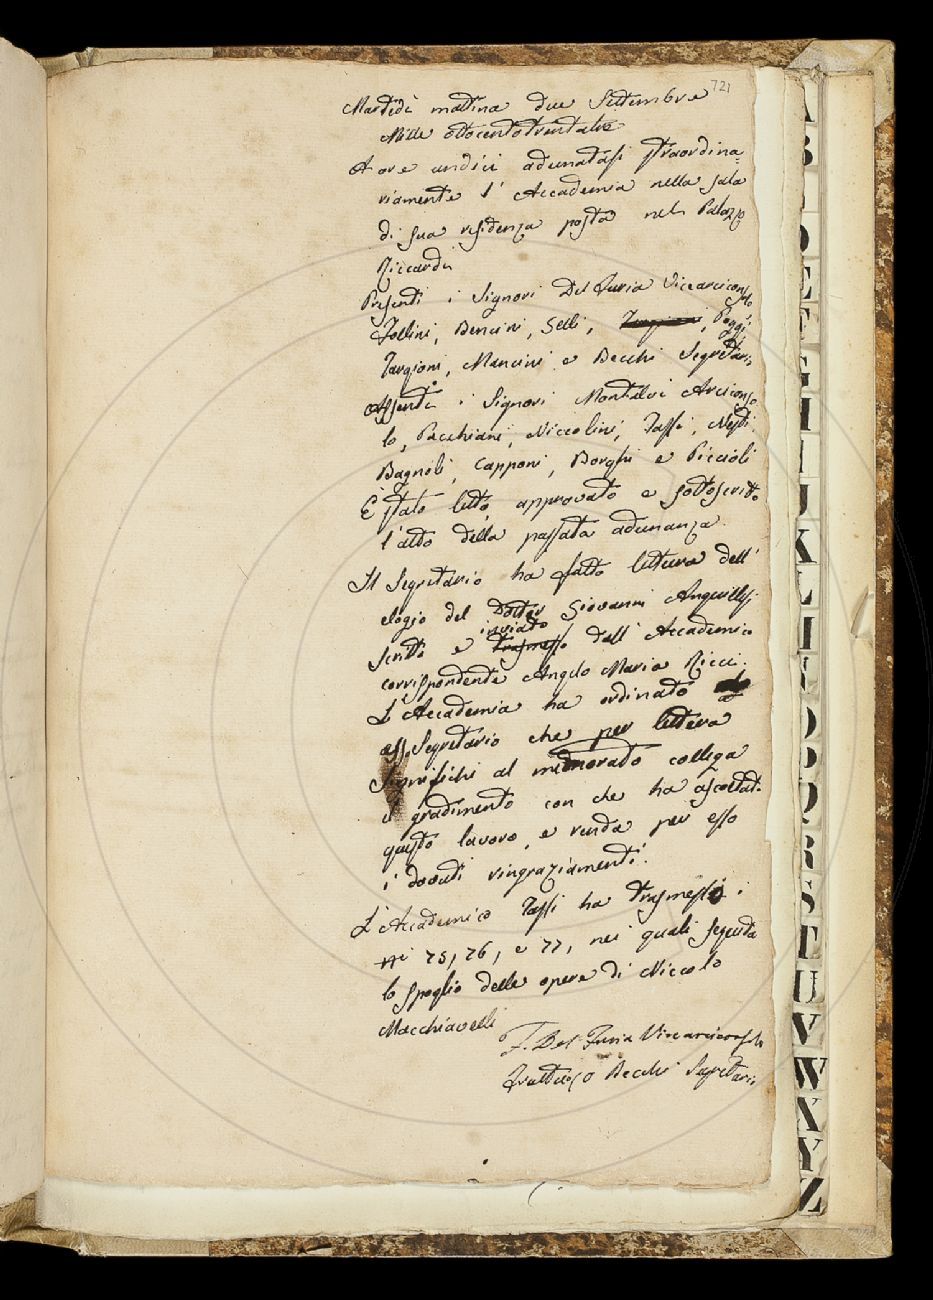 721
Martedì mattina due Settembre
Mille ottocentotrentatre
A ore undici adunatasi straordina=
riamente l'Accademia nella sala
di sua residenza posta nel Palazzo
Riccardi
Presenti i Signori Del Furia Vicearciconsolo
Follini, Bencini, Selli, Poggi,
Targioni, Mancini e Becchi Segretario
Assenti i Signori Montalvi Arciconso
lo, Pacchiani, Niccolini, Tassi, Nesti
Bagnoli, Capponi, Borghi e Piccioli
È stato letto, approvato e sottoscritto
l'atto della passata adunanza.
Il Segretario ha fatto lettura dell'
elogio del Dottor Giovanni Anguillesi
inviato
scritto e trasmesso dall'Accademico
corrispondente Angelo Maria Ricci.
L'Accademia ha ordinato
esso Segretario che per lettera
significhi al memorato collega
il gradimento con che ha ascoltato
questo lavoro, e renda per esso
i dovuti ringraziamenti.
L'Accademico Tassi ha trasmessi i
ni 75, 76, e 77, nei quali seguita
lo spoglio delle opere di Niccolò
Macchiavelli
F. Del Furia Vicearciconsolo
Fruttuoso Becchi Segretario
E
F
G
H
I
J
K
L
O
P
Q
R
S
T
U
V
W
X
Y
Z